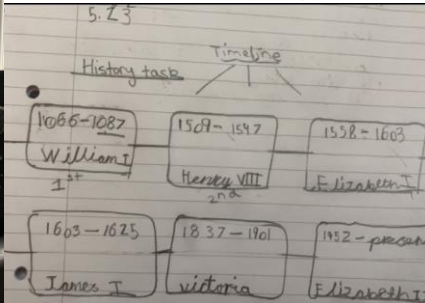 5.23
Timeline
History task
1066-1087
William I
1st
1509-1547
Henry VIII
2nd
1558-1603
Elizabeth I
1603-1625
James I
1837-1901
victoria
1952-present
Elizabeth II